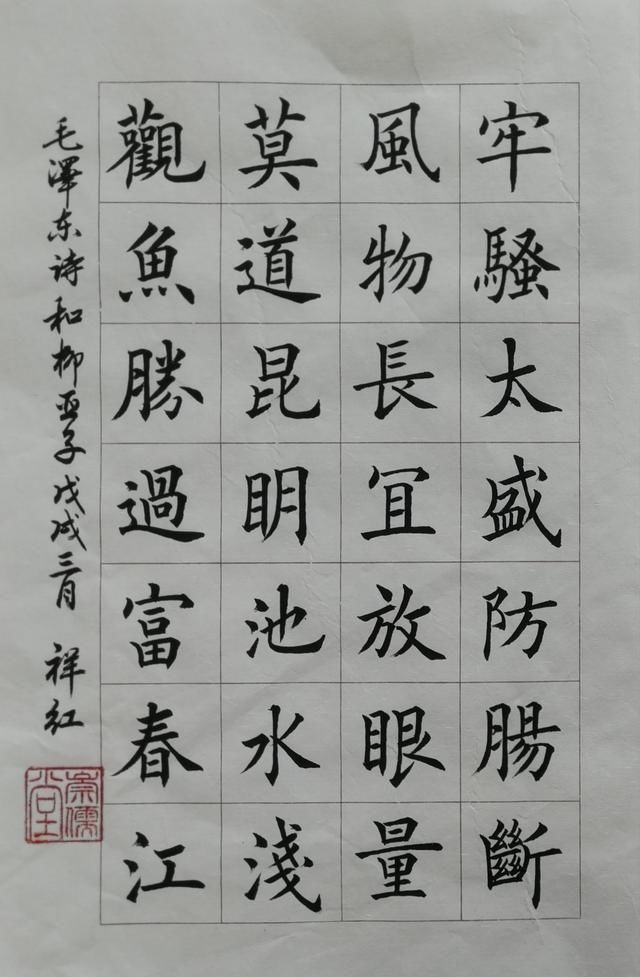 牢騷太盛防腸斷
風物長冝放眼量
莫道昆明池水淺
觀魚勝過富春江
毛澤东诗和柳亚子戊戌三月 祥红
崇儒堂